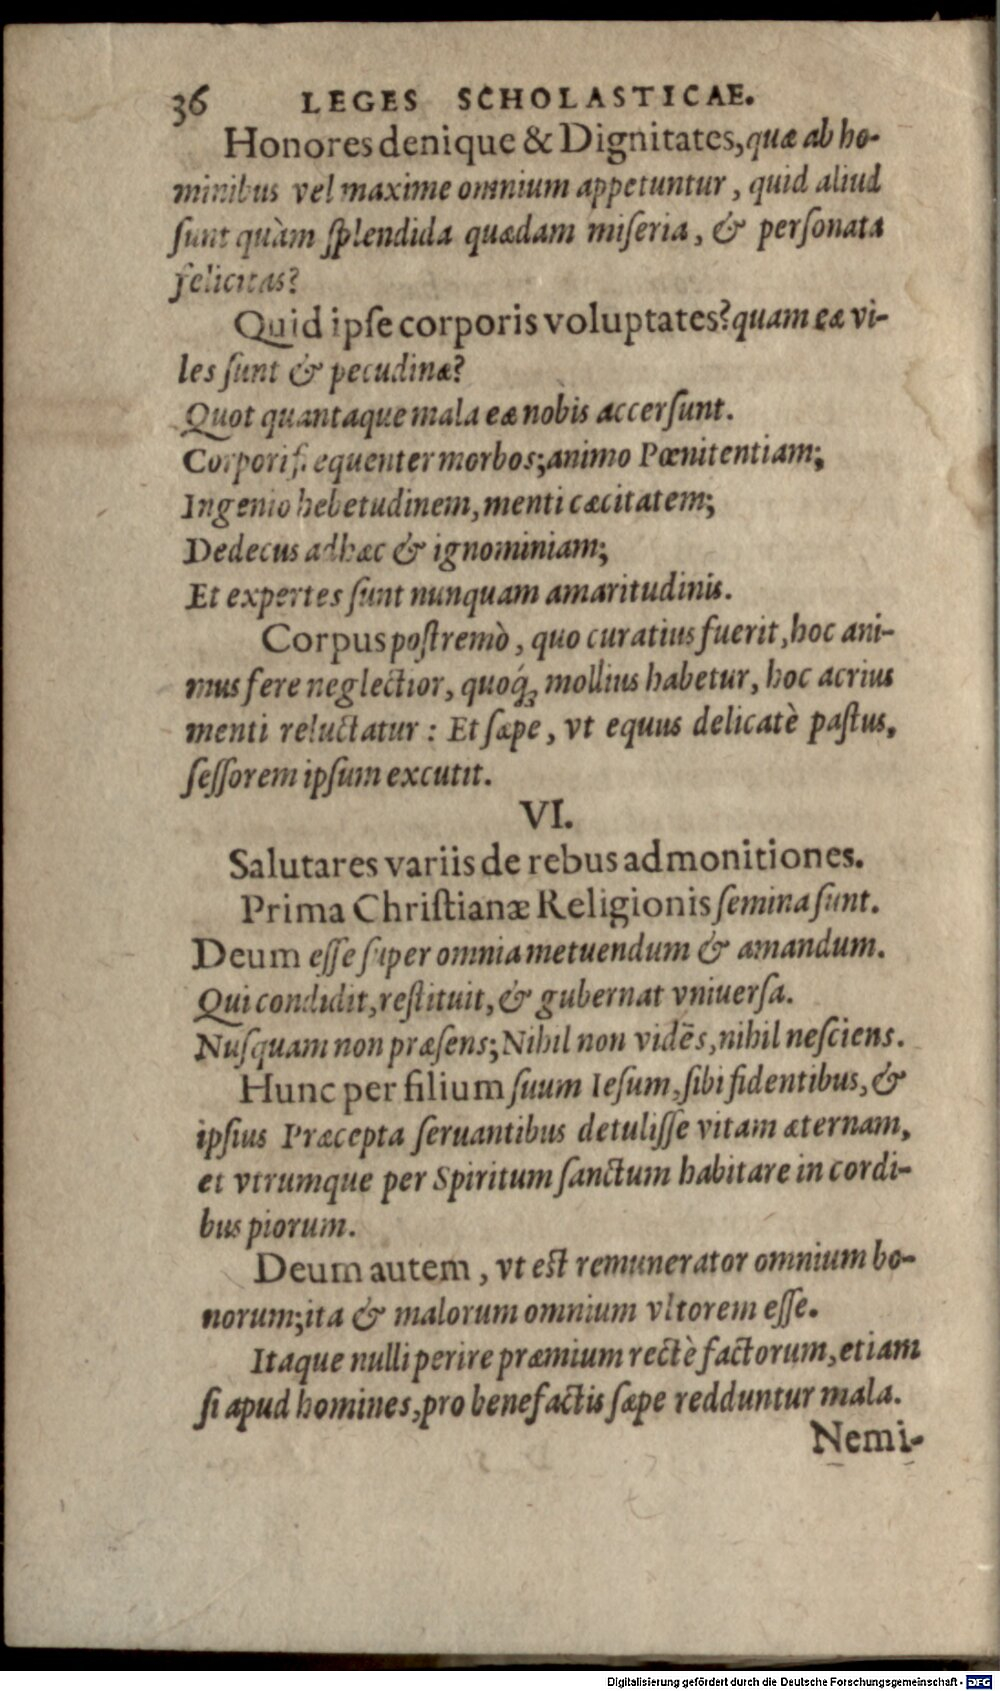 36 LEGES SCHOLASTICAE.
Honores denique & Dignitates, quæ ab ho-
minibus vel maxime omnium appetuntur, quid aliud
ſunt quàm ſplendida quædam miſeria, & perſonata
felicitas?
Quid ipſe corporis voluptates? quam eæ vi-
les ſunt & pecudinæ?
Quot quantaque mala eæ nobis accerſunt.
Corpori frequenter morbos; animo Pœnitentiam;
Ingenio hebetudinem, menti cæcitatem;
Dedecus adhæc & ignominiam;
Et expertes ſunt nunquam amaritudinis.
Corpus poſtremò, quo curatius fuerit, hoc ani-
mus fere neglectior, quoq́ꝫ mollius habetur, hoc acrius
menti reluctatur: Et ſæpe, vt equus delicatè paſtus,
ſeſſorem ipſum excutit.
VI.
Salutares variis de rebus admonitiones.
Prima Chriſtianæ Religionis ſemina ſunt.
Deum eſſe ſuper omnia metuendum & amandum.
Qui condidit, reſtituit, & gubernat vniuerſa.
Nuſquam non præſens; Nihil non vidẽs, nihil neſciens.
Hunc per filium ſuum Ieſum, ſibi fidentibus, &
ipſius Præcepta ſeruantibus detuliſſe vitam æternam,
et vtrumque per Spiritum ſanctum habitare in cordi-
bus piorum.
Deum autem, vt eſt remunerator omnium bo-
norum; ita & malorum omnium vltorem eſſe.
Itaque nulli perire præmium rectè factorum, etiam
ſi apud homines, pro benefactis ſæpe redduntur mala.
Nemi-
Digitalisierung gefördert durch die Deutsche Forschungsgemeinschaft - DFG